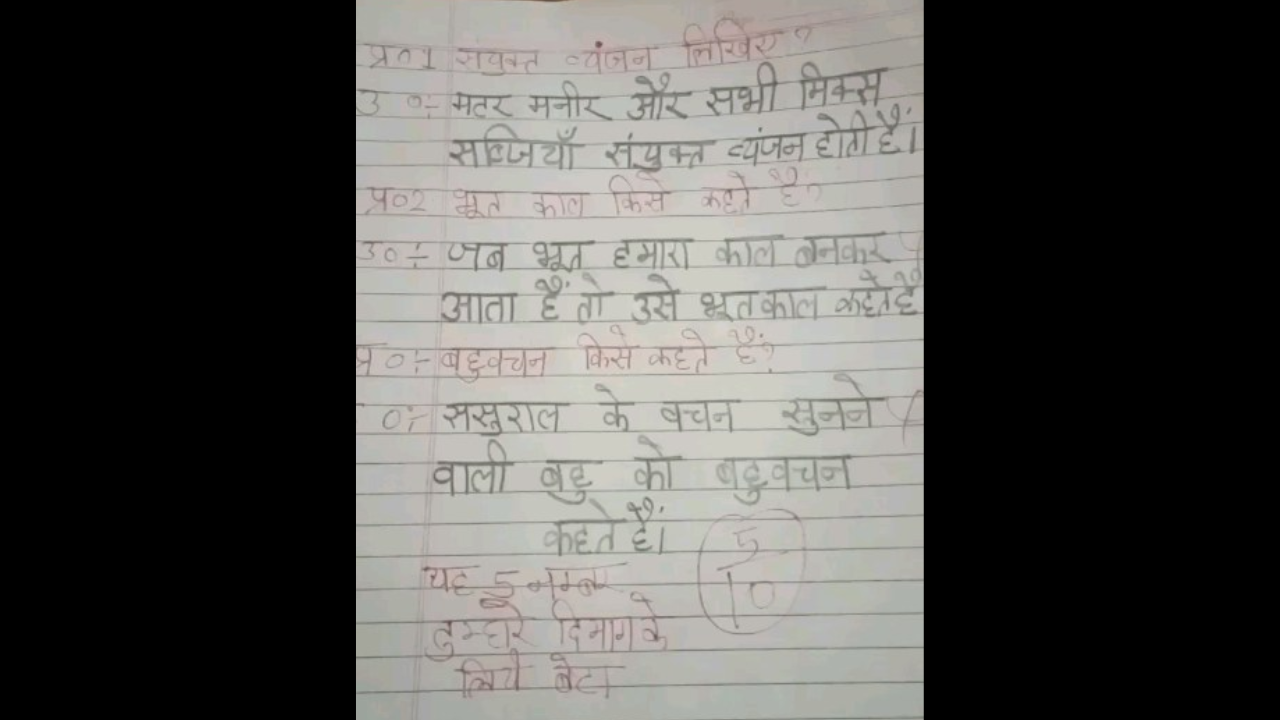 प्र०1 संयुक्त व्यंजन लिखिए?
उ०÷ मटर मनीर और सभी मिक्स
सब्जियाँ संयुक्त व्यंजन होती हैं।
प्र०2 भूत काल किसे कहते हैं?
उ०÷ जब भूत हमारा काल बनकर
आता हैं तो उसे भूतकाल कहते है
प्र०÷ बहुवचन किसे कहते हैं?
०÷ ससुराल के वचन सुनने
वाली बहु को बहुवचन
कहते हैं।
5/10
यह 5 नम्बर
तुम्हारे दिमाग के
लिये बेटा